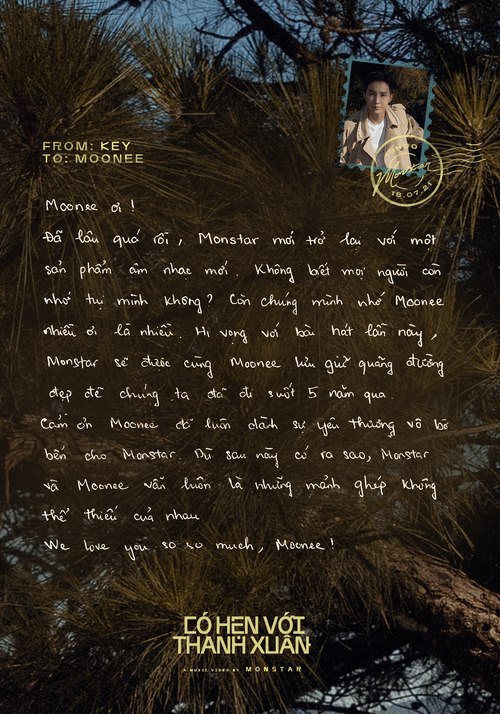 FROM: KEY
TO: MOONEE
18.07.21
Moonee ơi!
Đã lâu quá rồi, Monstar mới trở lại với một
sản phẩm âm nhạc mới. Không biết mọi người còn
nhớ tụi mình không? Còn chúng mình nhớ Moonee
nhiều ơi là nhiều. Hi vọng với bài hát lần này,
Monstar sẽ được cùng Moonee lưu giữ quãng đường
đẹp đẽ chúng ta đã đi suốt 5 năm qua.
Cảm ơn Moonee đã luôn dành sự yêu thương vô bờ
bến cho Monstar. Dù sau này có ra sao, Monstar
và Moonee vẫn luôn là những mảnh ghép không
thể thiếu của nhau
We love you so so much, Moonee!
CÓ HẸN VỚI
THANH XUÂN
A MUSIC VIDEO BY MONSTAR